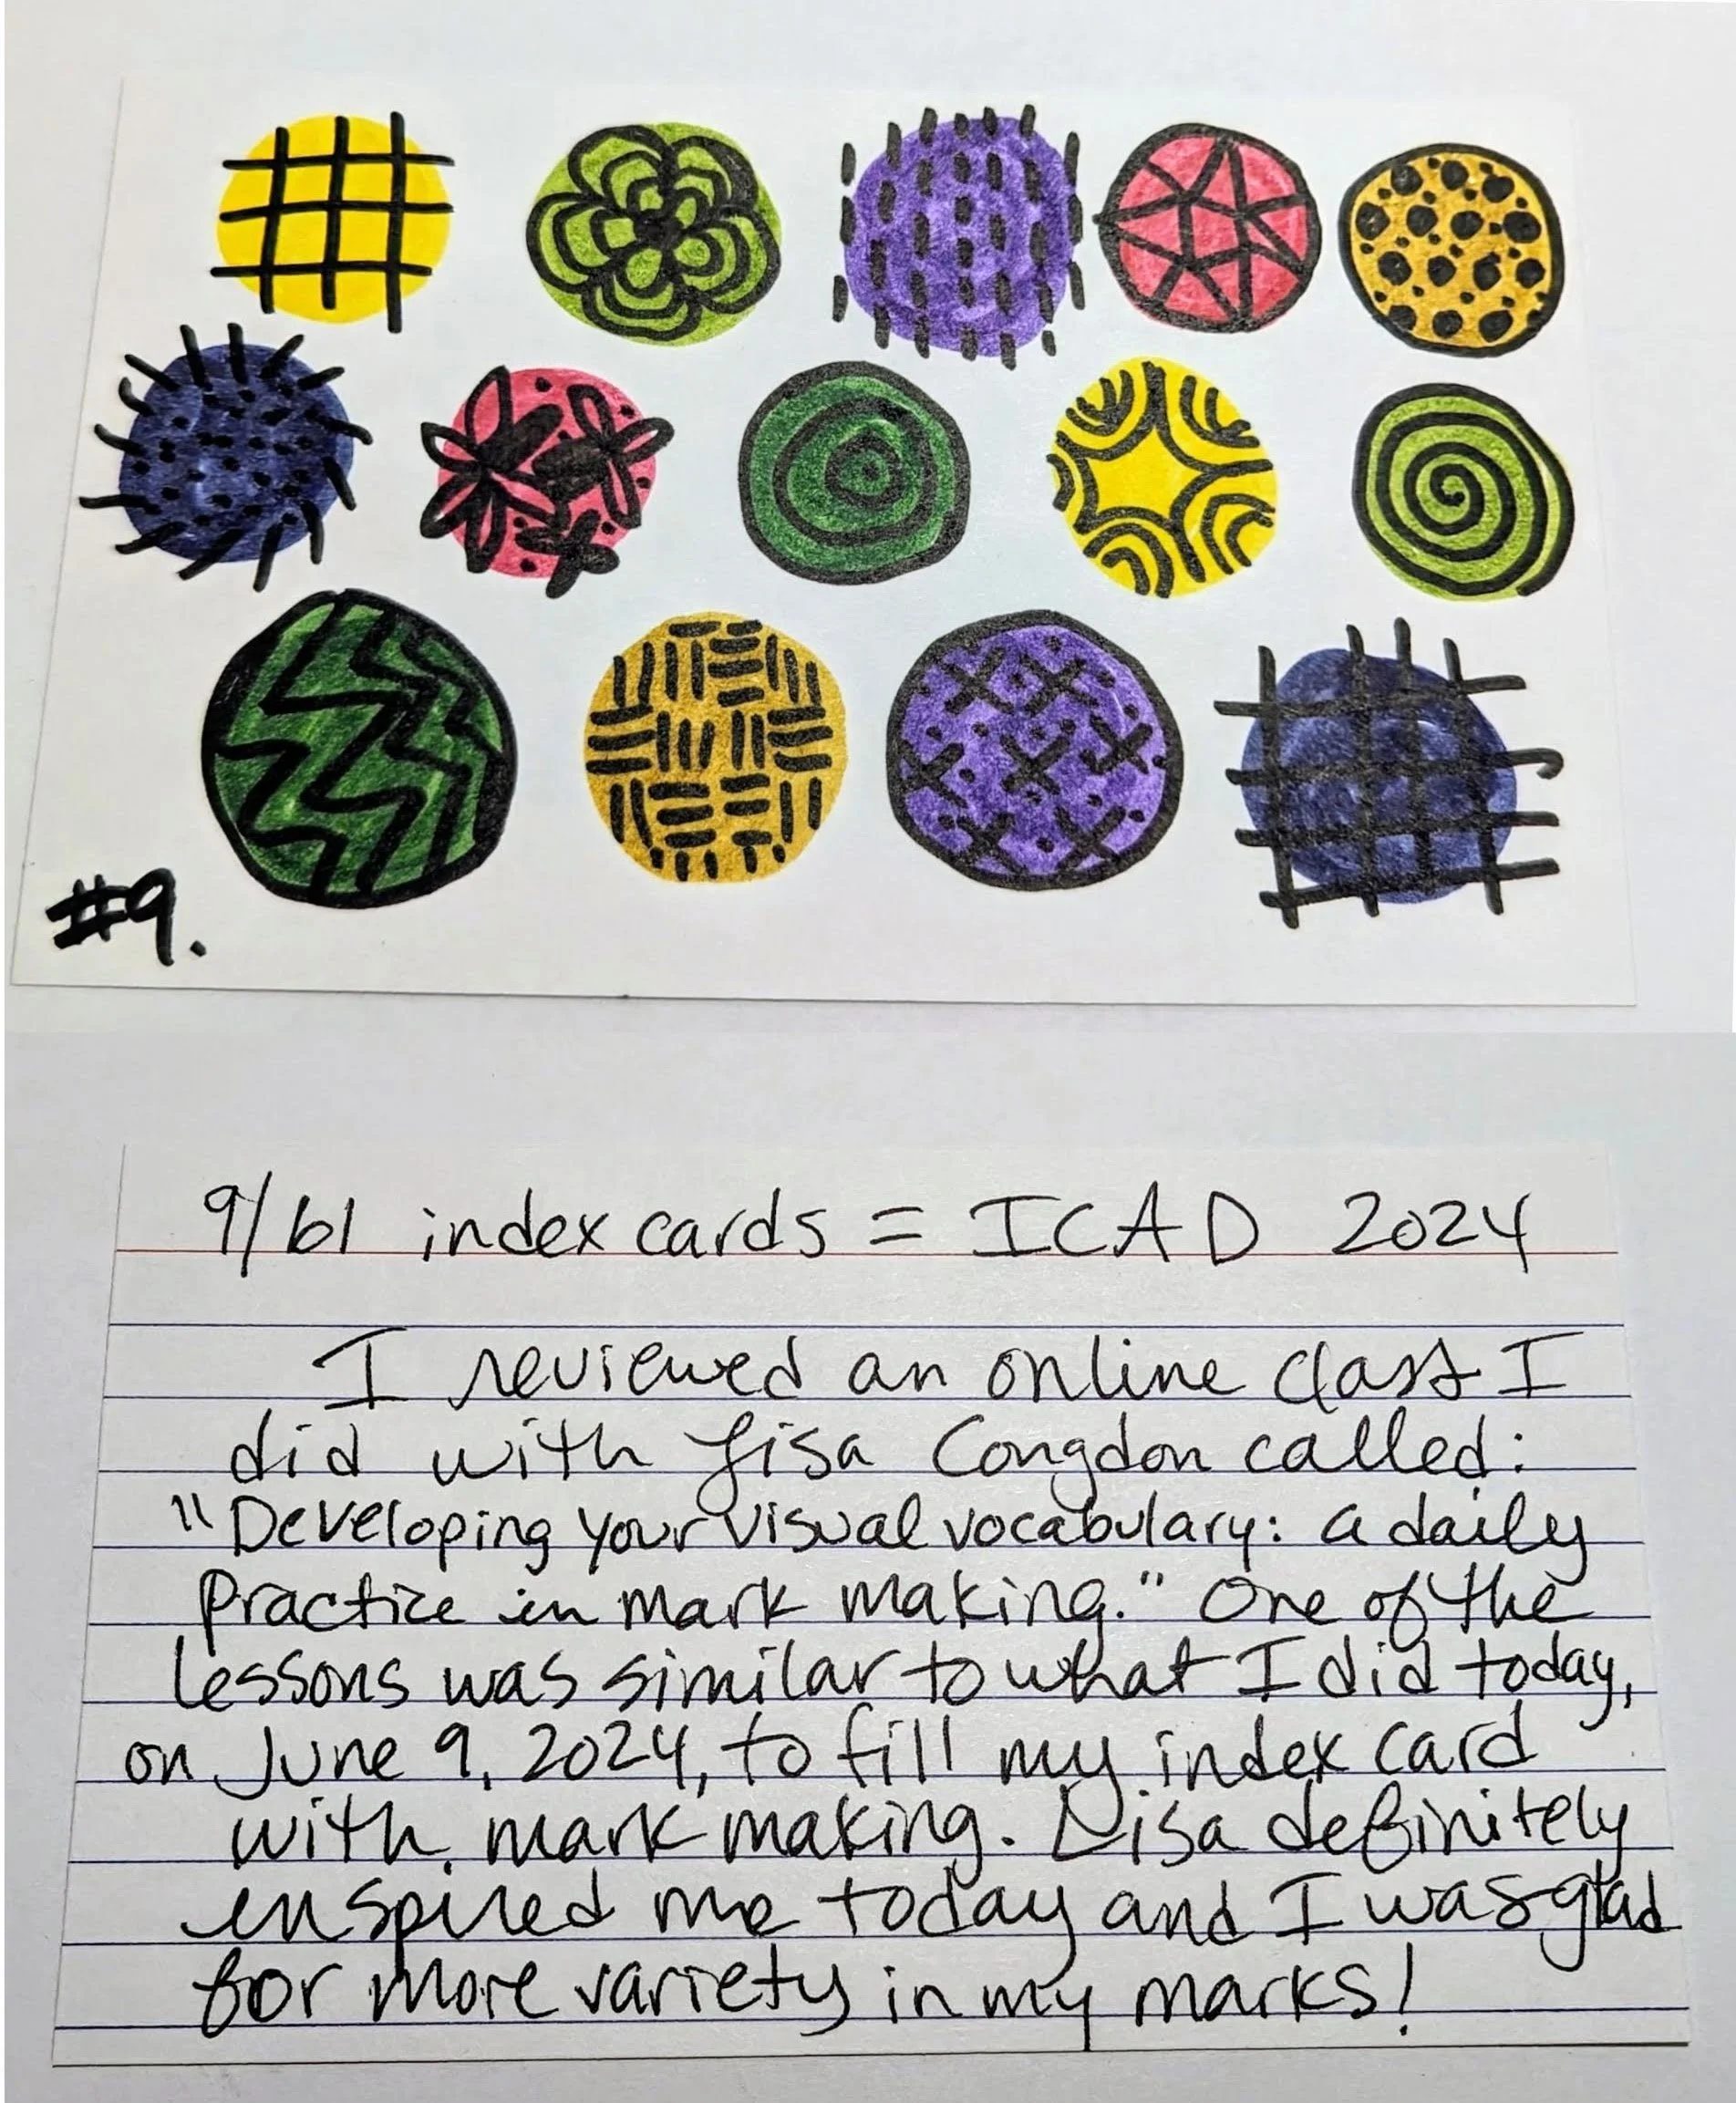 #9.
9/61 index cards = ICAD 2024
I reviewed an online class I
did with Lisa Congdon called:
"Developing your visual vocabulary: a daily
practice in mark making." One of the
lessons was similar to what I did today,
on June 9, 2024, to fill my index card
with mark making. Lisa definitely
inspired me today and I was glad
for more variety in my marks!